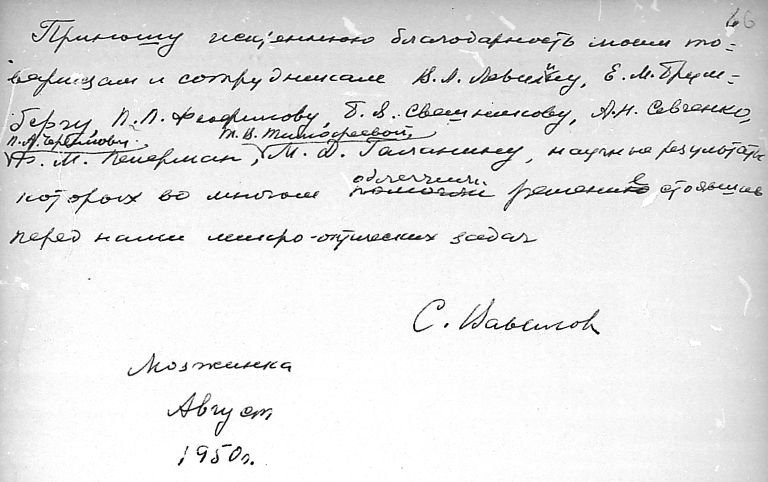 66
Приношу искреннюю благодарность моим то-
варищам и сотрудникам В. Л. Левшину, Е. М. Брум-
бергу, П. П. Феофилову, Б. Я. Свешникову, А. Н. Севченко,
П. А. Черенкову, Т. В. Тимофеевой,
Ф. М. Пекерман, М. Д. Галанину, научные результаты
облегчили
которых во многом помогли решение стоявших
перед нами микро-оптических задач
С. Вавилов
Мозжинка
Август
1950 г.